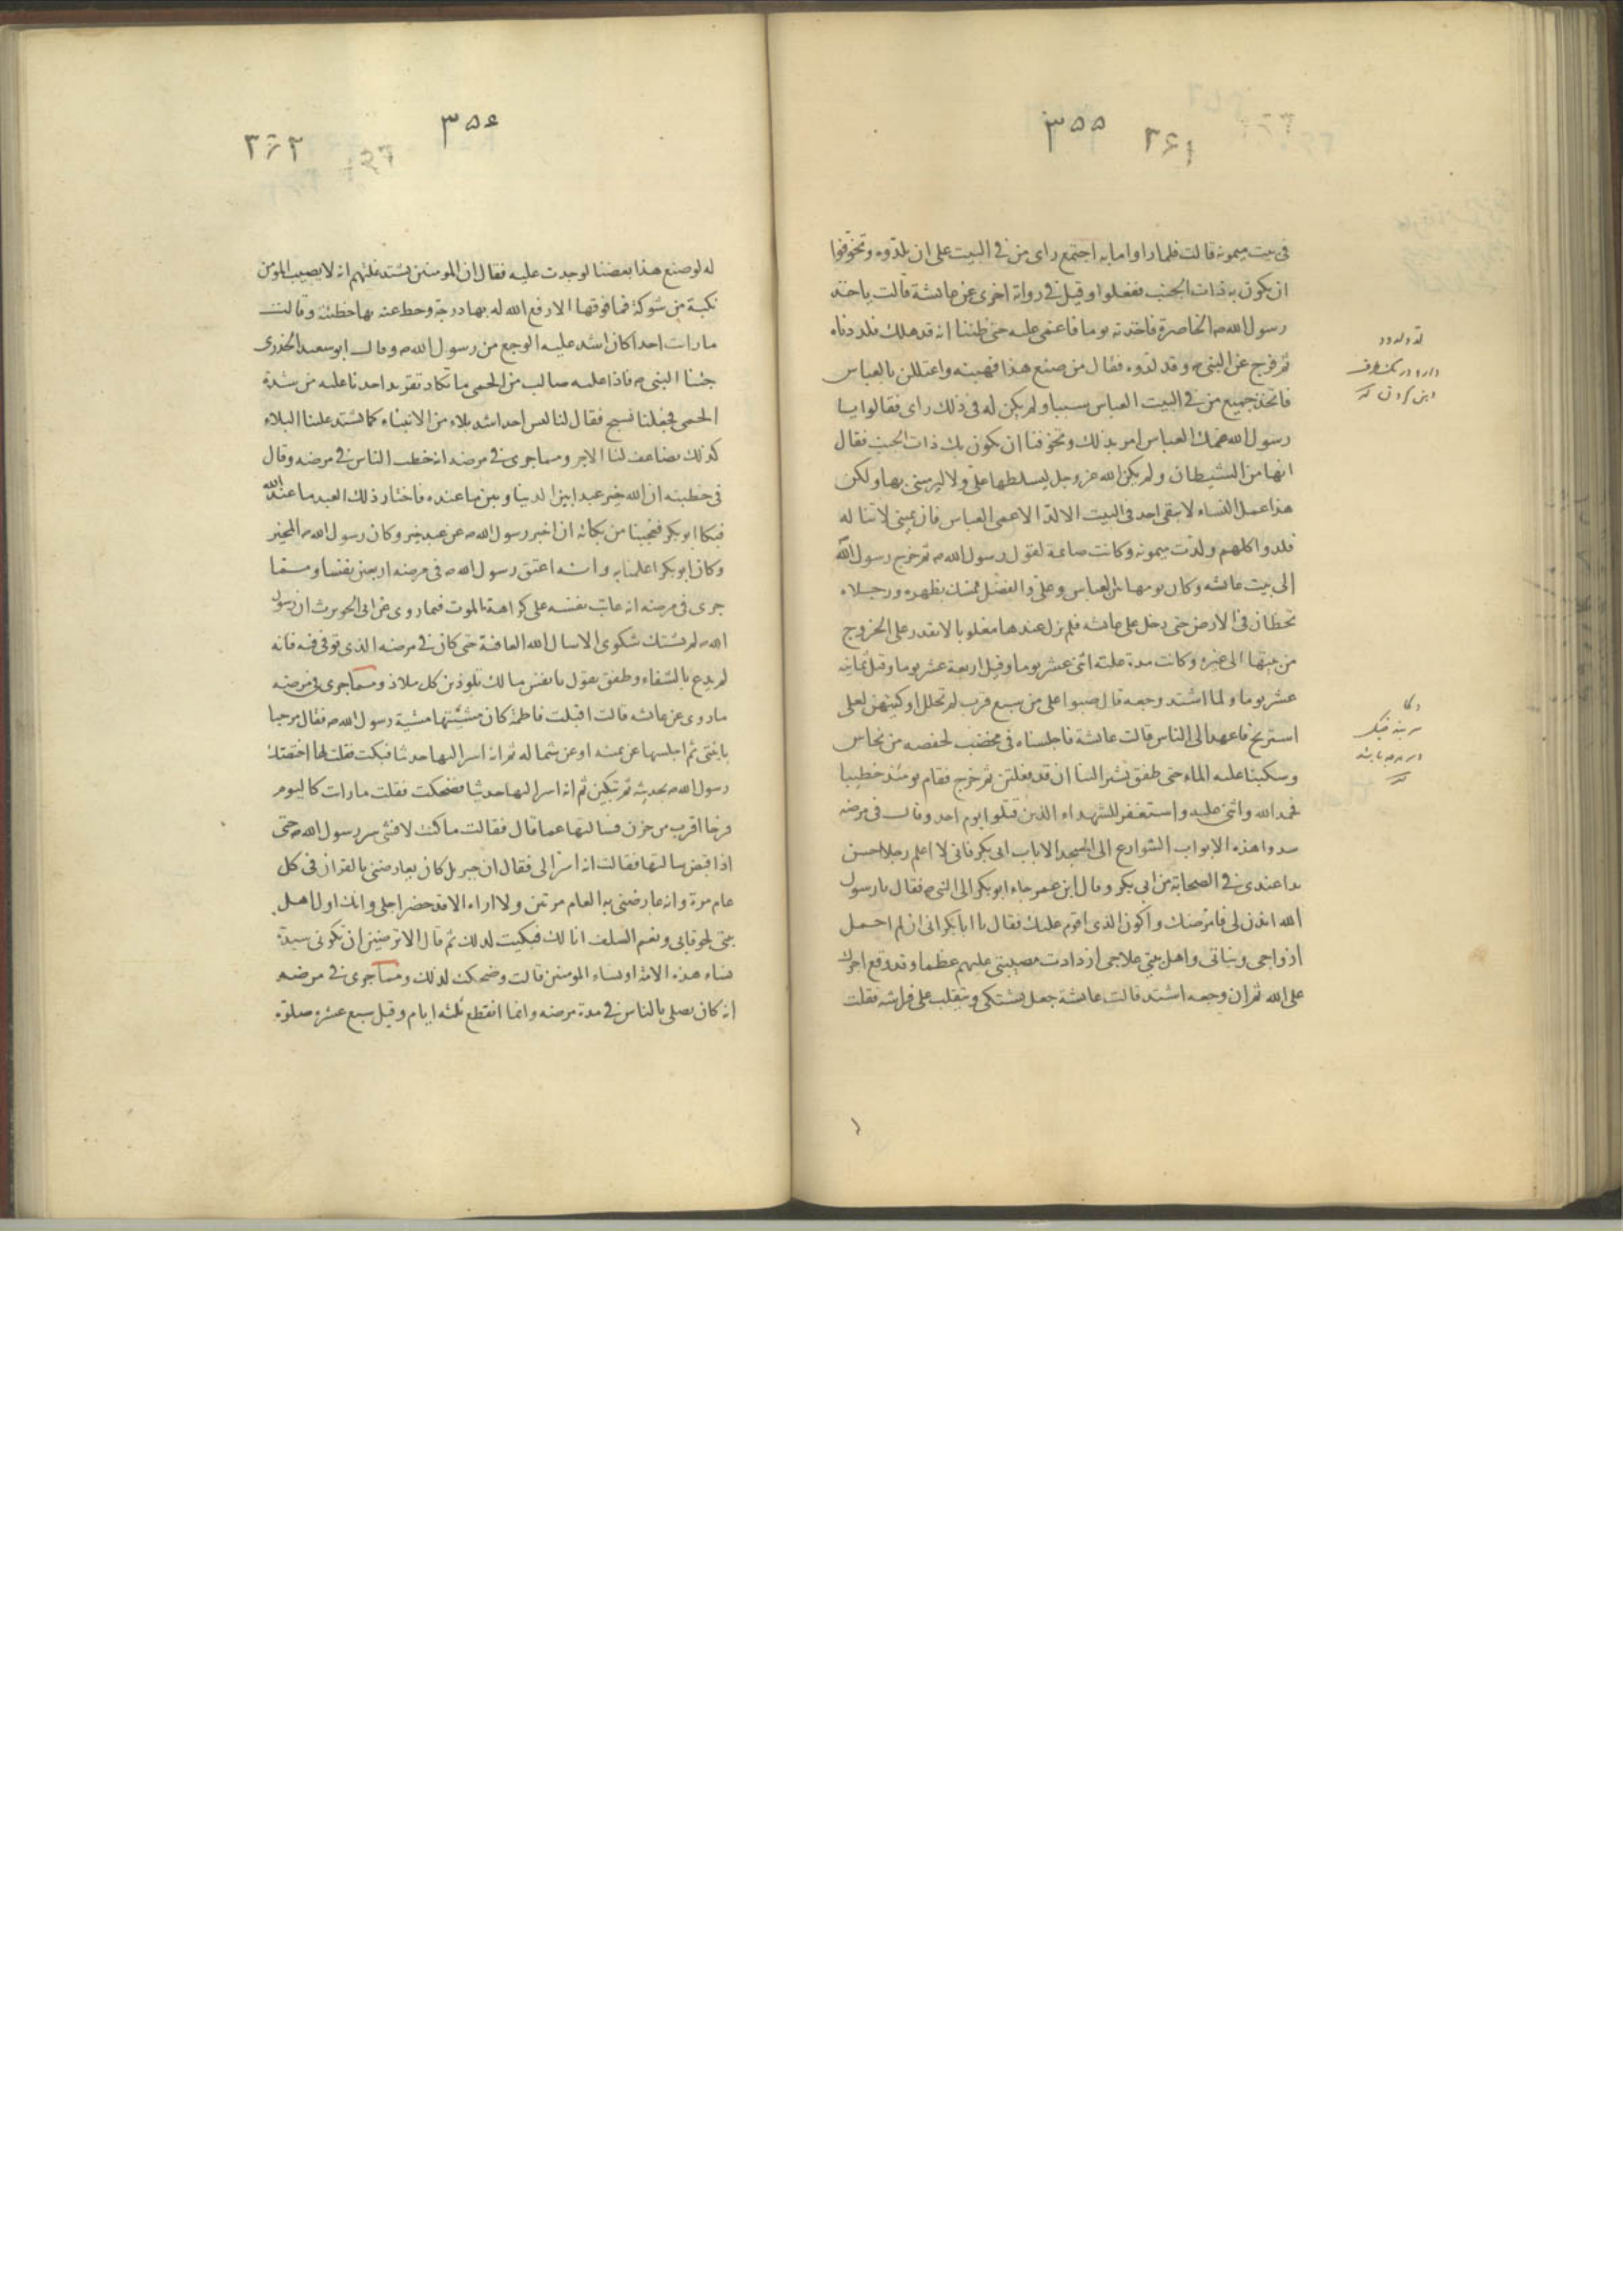 ٣٥٥ ٣٦١
في بيت ميمونه قالت فلما راوا ما به اجتمع راى من في البيت على ان يلدّوه وتخوّفوا
ان يكون به ذات الجنب ففعلوا وقيل في رواية اخرى عن عائشة قالت ياخذ
رسول الله ص الخاصرة فاخذته يوما فاغمى عليه حتى ظننا انه قد هلك فلددناه
ثم فرج عن النبي ص وقد لدّوه فقال من صنع هذا فهبنه واعتللن بالعباس
فاتخذ جميع من في البيت العباس سببا ولم يكن له في ذلك راى فقالوا يا
رسول الله عمك العباس امر بذلك وتخوفنا ان يكون بك ذات الجنب فقال
انها من الشيطان ولم يكن الله عز وجل ليسلطها علىّ ولا ليرميني بها ولكن
هذا عمل النساء لا يبقى احد في البيت الا لدّ الا عمى العباس فان يميني لا تناله
فلدوا كلهم ولدّت ميمونه وكانت صائمة لقول رسول الله ص ثم خرج رسول الله
إلى بيت عائشه وكان يومها بين العباس وعلى والفضل ممسك بظهره ورجلاه
تخطان في الارض حتى دخل على عائشه فلم يزل عندها مغلوبا لا يقدر على الخروج
من بيتها الى غيره وكانت مدة علته اثنى عشر يوما وقيل اربعة عشر يوما وقيل ثمانية
عشر يوما ولما اشتد وجعه قال صبوا على من سبع قرب لم تحلل اوكيتهن لعلى
استريح فاعهد الى الناس قالت عائشة فاجلسناه في مخضب لحفصه من نحاس
وسكبنا عليه الماء حتى طفق يشير الينا ان قد فعلتن ثم خرج فقام يومئذ خطيبا
فحمد الله واثنى عليه واستغفر للشهداء الذين قتلوا يوم احد وقال في مرضه
سدوا هذه الابواب الشوارع الى المسجد الا باب ابى بكر فانى لا اعلم رجلا احسن
يدا عندى في الصحابة من ابى بكر وقال ابن عمر جاء ابو بكر الى النبي ص فقال يا رسول
الله ائذن لى فامرضك واكون الذى اقوم عليك فقال يا ابا بكر انى ان لم احمل
ازواجى وبناتى واهل بيتى علاجى ازدادت مصيبتى عليهم عظما وقد وقع اجرك
على الله ثم ان وجعه اشتد قالت عائشة جعل يشتكى ويتقلب على فراشه فقلت
٣٥٤ ٣٦٢
له لو صنع هذا بعضنا لوجدت عليه فقال ان المومنين يشتد عليهم انه لا يصيب المومن
نكبة من شوكة فما فوقها الا رفع الله له بها درجة وحط عنه بها خطيئة وقالت
ما رايت احدا كان اشد عليه الوجع من رسول الله ص وقال ابو سعيد الخدرى
جئنا النبي ص فاذا عليه صالب من الحمى ما تكاد تقر يد احدنا عليه من شدة
الحمى فجعلنا نسبح فقال لنا ليس احد اشد بلاء من الانبياء كما يشتد علينا البلاء
كذلك يضاعف لنا الاجر ومما جرى في مرضه انه خطب الناس في مرضه وقال
في خطبته ان الله خير عبدا بين الدنيا وبين ما عنده فاختار ذلك العبد ما عند الله
فبكا ابو بكر فتعجبنا من بكائه ان اخبر رسول الله ص عن عبد خير وكان رسول الله ص المخير
وكان ابو بكر اعلمنا به وانه اعتق رسول الله ص في مرضه اربعين نفسا ومما
جرى في مرضه انه عاتب نفسه على كراهة الموت فيما روى عن ابى الحويرث ان رسول
الله ص لم يشتك شكوى الا سال الله العافية حتى كان في مرضه الذى توفى فيه فانه
لم يدع بالشفاء وطفق يقول يا نفس مالك تلوذين كل ملاذ ومما جرى في مرضه
ما روى عن عائشه قالت اقبلت فاطمة كان مشيتها مشية رسول الله ص فقال مرحبا
بابنتى ثم اجلسها عن يمينه او عن شماله ثم انه اسر اليها حديثا فبكت فقلت لها اختصك
رسول الله ص بحديثه ثم تبكين ثم انه اسر اليها حديثا فضحكت فقلت ما رايت كاليوم
فرحا اقرب من حزن فسالتها عما قال فقالت ما كنت لافشى سر رسول الله ص حتى
اذا قبض سالتها فقالت انه اسر الى فقال ان جبريل كان يعارضنى بالقران في كل
عام مرة وانه عارضنى به العام مرتين ولا اراه الا قد حضر اجلى وانك اول اهل
بيتى لحوقا بى ونعم السلف انا لك فبكيت لذلك ثم قال الا ترضين ان تكونى سيدة
نساء هذه الامة او نساء المومنين قالت وضحكت لذلك ومما جرى في مرضه
انه كان يصلى بالناس في مدة مرضه وانما انقطع ثلثة ايام وقيل سبع عشره صلوة